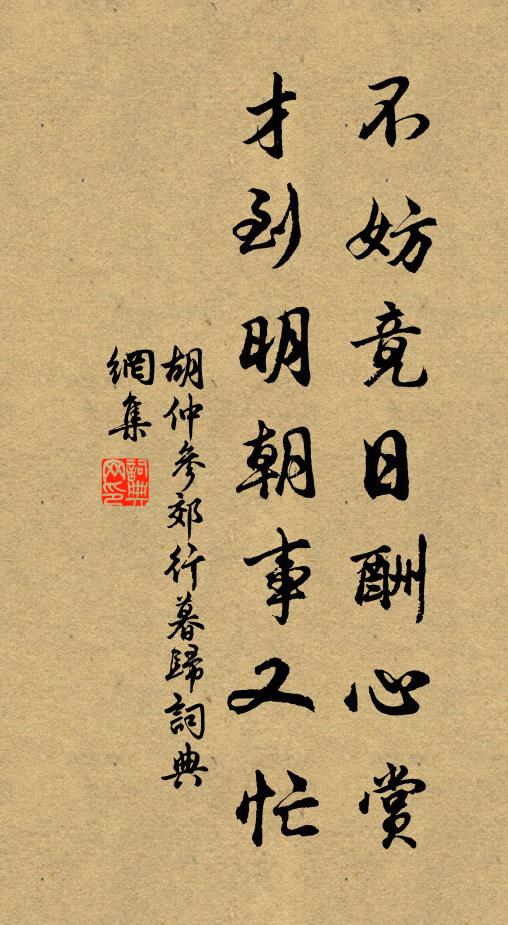 不妨竟日酬心赏
才到明朝事又忙
胡仲参郊行暮歸詞典
網集
詞典網印